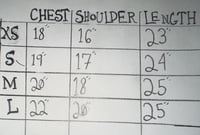 CHEST SHOULDER LENGTH
XS 18" 16" 23"
S 19" 17" 24"
M 20" 18" 25"
L 22" 20" 25"